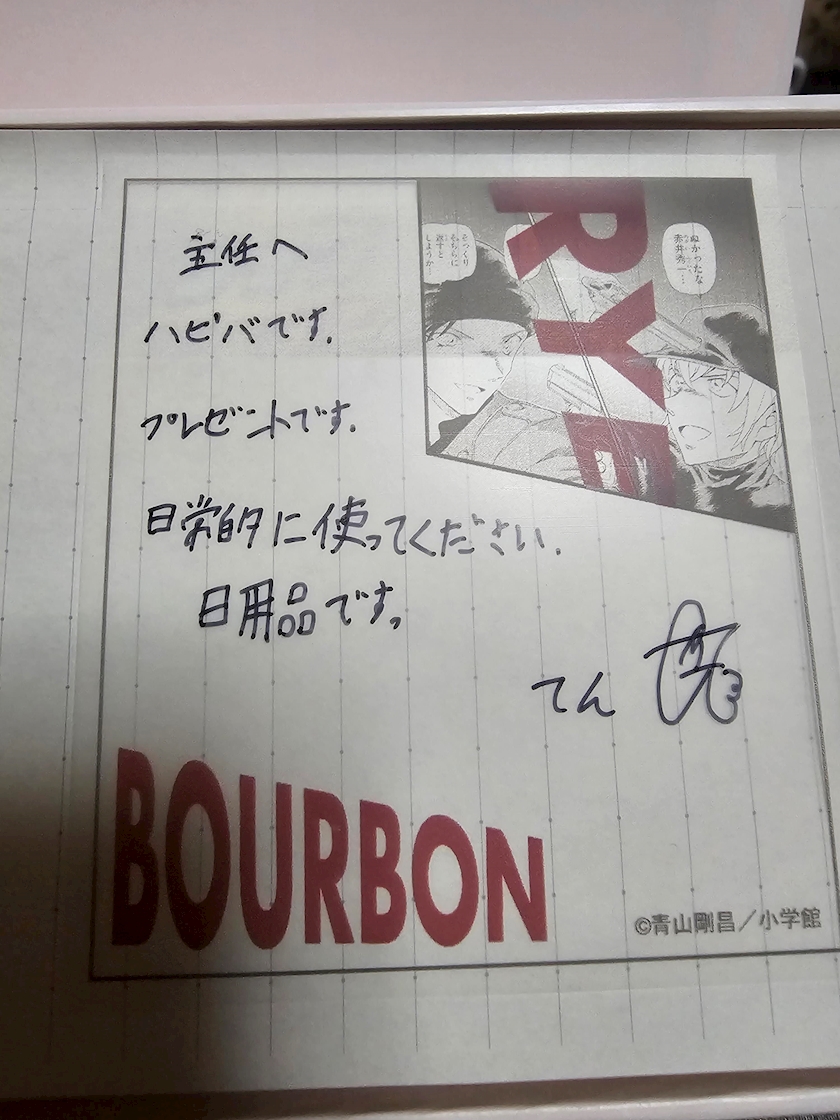 主任へ
ハピバです。
プレゼントです。
日常的に使ってください。
日用品です。
てん
RYE
ぬかったな
赤井秀一…
そっくり
そちらに
返すと
しようか…
BOURBON
©青山剛昌／小学館